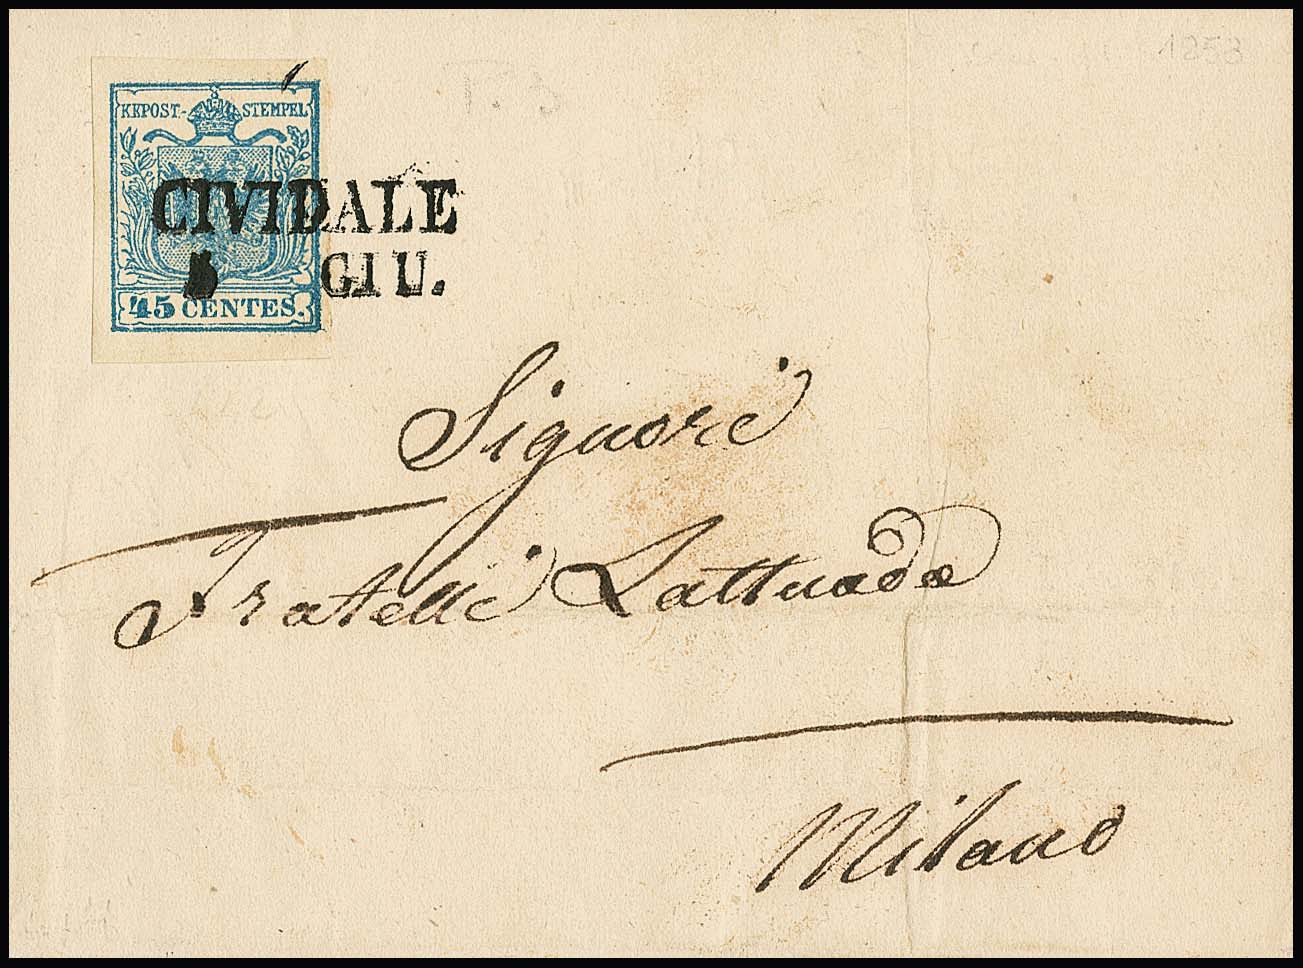 1853
KKPOST-STEMPEL
CIVIDALE
GIU.
45 CENTES.
Signori
Fratelli Lattuada
Milano